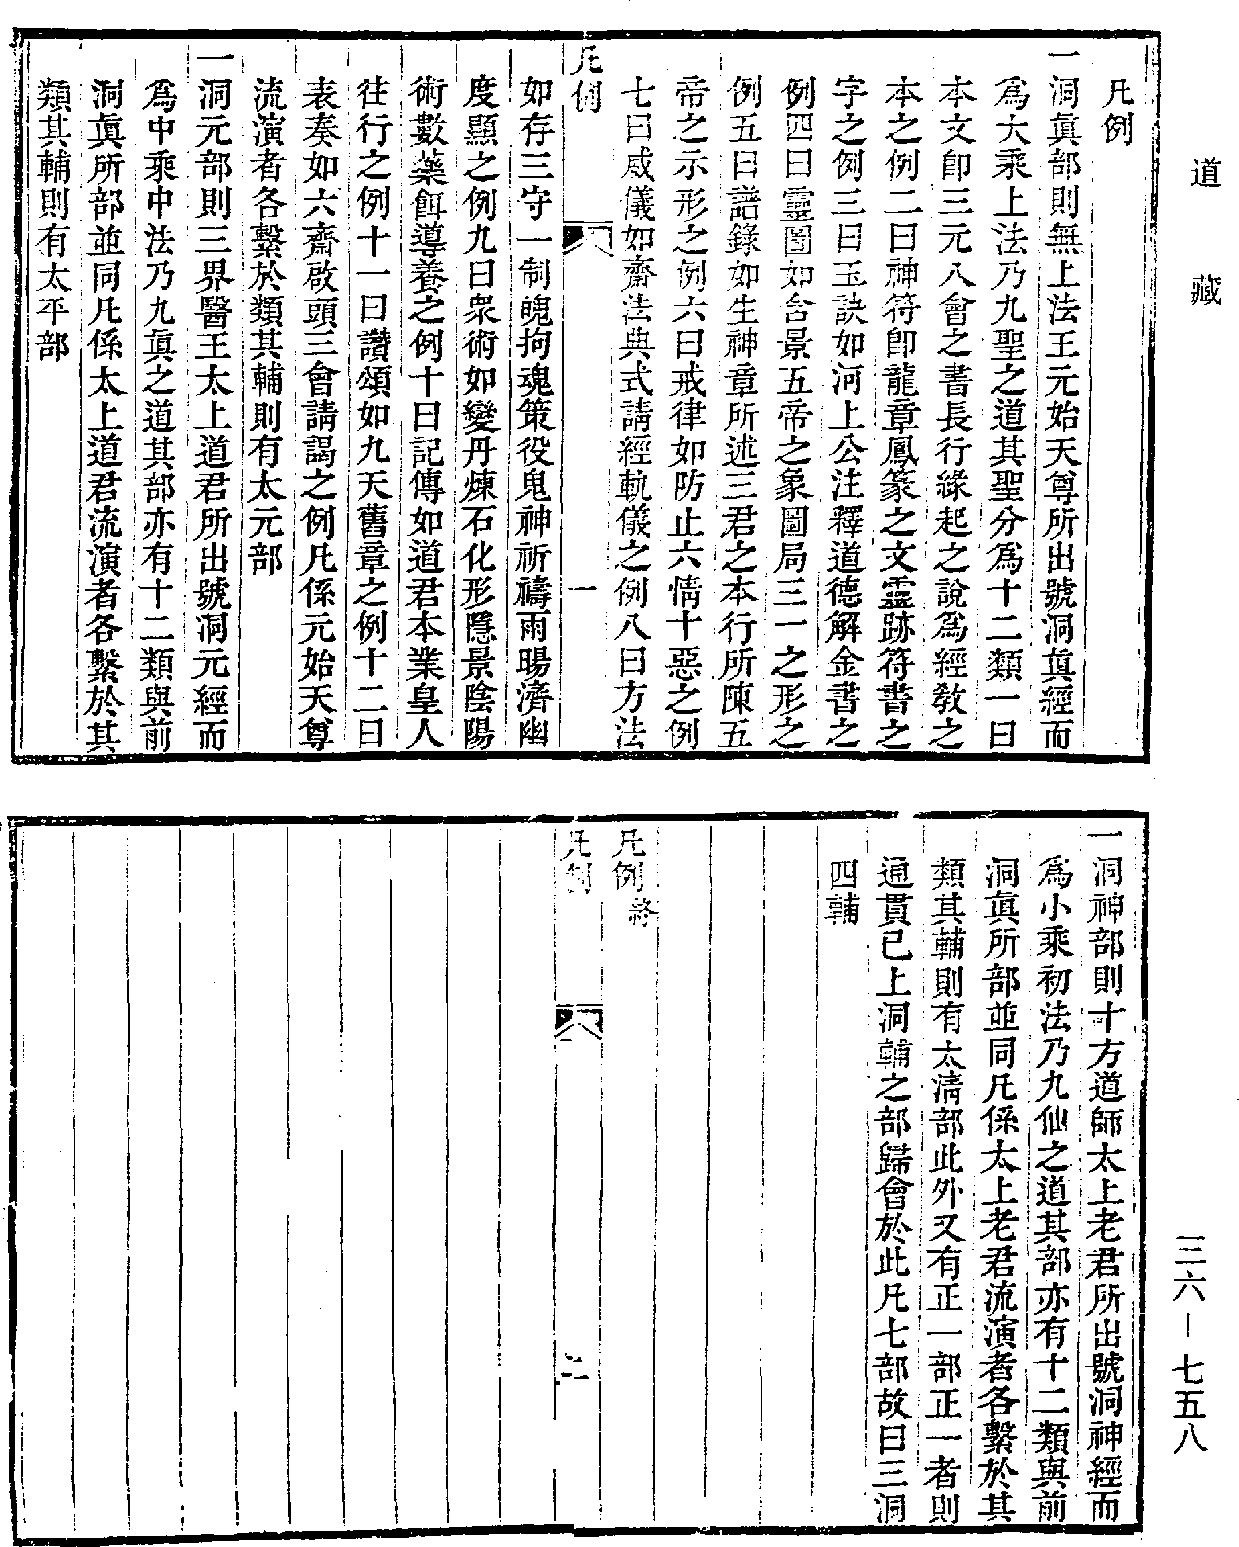 道藏
凡例
一洞眞部則無上法王元始天尊所出號洞眞經而
爲大乘上法乃九聖之道其聖分爲十二類一曰
本文卽三元八會之書長行緣起之說爲經敎之
本之例二曰神符卽龍章鳳篆之文靈跡符書之
字之例三曰玉訣如河上公注釋道德解金書之
例四曰靈圖如含景五帝之象圖局三一之形之
例五曰譜錄如生神章所述三君之本行所陳五
帝之示形之例六曰戒律如防止六情十惡之例
七曰威儀如齋法典式請經軌儀之例八曰方法
凡例
一
如存三守一制魄拘魂策役鬼神祈禱雨暘濟幽
度顯之例九曰衆術如變丹煉石化形隱景陰陽
術數藥餌導養之例十曰記傳如道君本業皇人
往行之例十一曰讚頌如九天舊章之例十二曰
表奏如六齋啟頭三會請謁之例凡係元始天尊
流演者各繫於類其輔則有太元部
一洞元部則三界醫王太上道君所出號洞元經而
爲中乘中法乃九眞之道其部亦有十二類與前
洞眞所部並同凡係太上道君流演者各繫於其
類其輔則有太平部
一洞神部則十方道師太上老君所出號洞神經而
爲小乘初法乃九仙之道其部亦有十二類與前
洞眞所部並同凡係太上老君流演者各繫於其
類其輔則有太清部此外又有正一部正一者則
通貫已上洞輔之部歸會於此凡七部故曰三洞
四輔
凡例終
凡例
二
三六—七五八